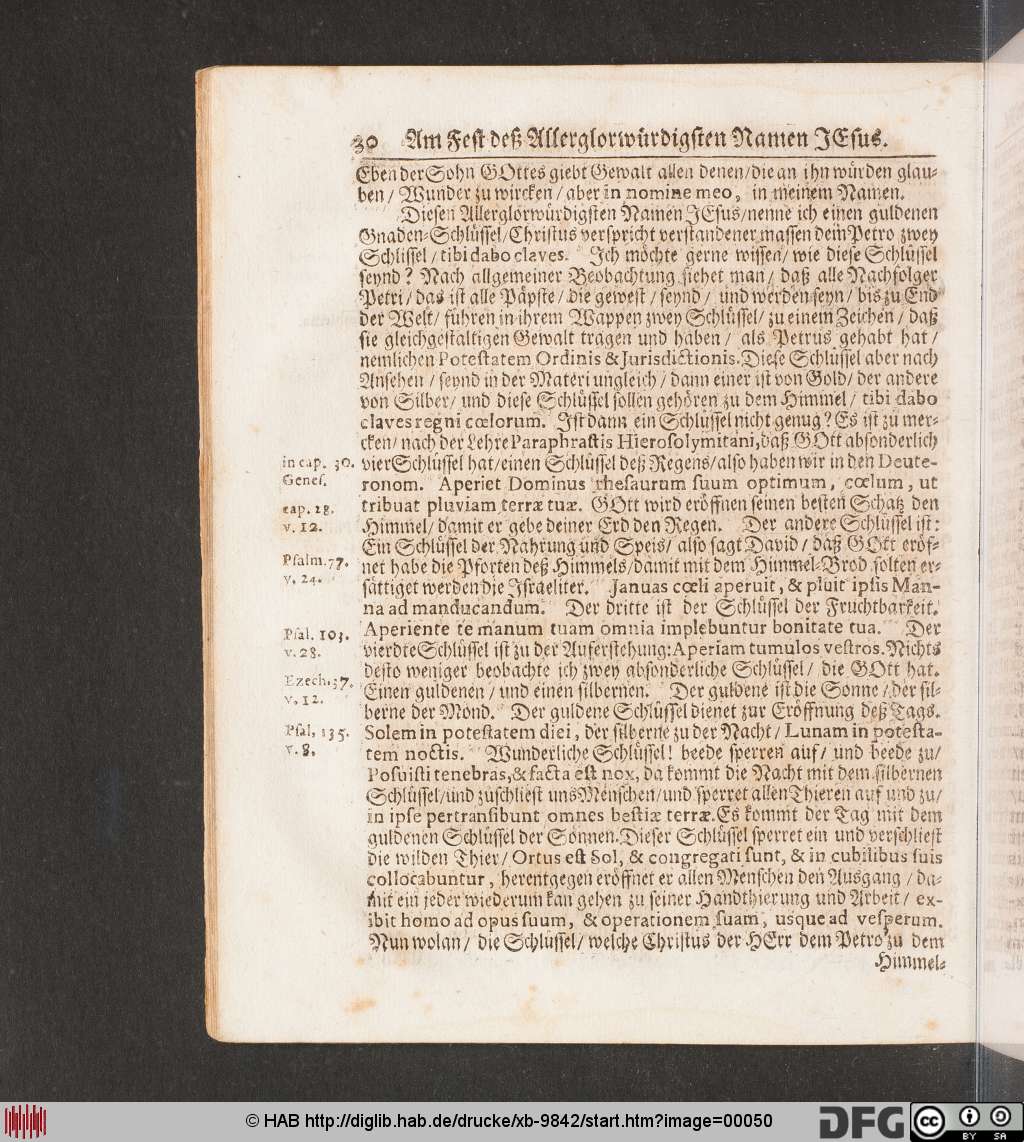 30 Am Fest deß Allerglorwürdigsten Namen JEsus.
Eben der Sohn GOttes giebt Gewalt allen denen/die an ihn würden glau-
ben/ Wunder zu wircken/ aber in nomine meo, in meinem Namen.
Diesen Allerglorwürdigsten Namen JEsus/nenne ich einen guldenen
Gnaden-Schlüssel/Christus verspricht verstandener massen dem Petro zwey
Schlissel/ tibi dabo claves. Ich möchte gerne wissen/ wie diese Schlüssel
seynd? Nach allgemeiner Beobachtung siehet man/ daß alle Nachfolger
Petri/ das ist alle Päpste/ die gewest/ seynd/ und werden seyn/ bis zu End
der Welt/ führen in ihrem Wappen zwey Schlüssel/ zu einem Zeichen/ daß
sie gleichgestaltigen Gewalt tragen und haben/ als Petrus gehabt hat/
nemlichen Potestatem Ordinis & Jurisdictionis. Diese Schlüssel aber nach
Ansehen/ seynd in der Materi ungleich/ dann einer ist von Gold/ der andere
von Silber/ und diese Schlüssel sollen gehören zu dem Himmel/ tibi dabo
claves regni cœlorum. Ist dann ein Schlüssel nicht genug? Es ist zu mer-
cken/ nach der Lehre Paraphrastis Hierosolymitani, daß GOtt absonderlich
in cap. 30. vier Schlüssel hat/einen Schlüssel deß Regens/also haben wir in den Deute-
Genes. ronom. Aperiet Dominus thesaurum suum optimum, cœlum, ut
cap. 28. tribuat pluviam terræ tuæ. GOtt wird eröffnen seinen besten Schatz den
v. 12. Himmel/ damit er gebe deiner Erd den Regen. Der andere Schlüssel ist:
Ein Schlüssel der Nahrung und Speis/ also sagt David/ daß GOtt eröf-
Psalm. 77. net habe die Pforten deß Himmels/damit mit dem Himmel-Brod solten er-
v. 24. sättiget werden die Israeliter. Januas cœli aperuit, & pluit ipsis Man-
na ad manducandum. Der dritte ist der Schlüssel der Fruchtbarkeit.
Psal. 103. Aperiente te manum tuam omnia implebuntur bonitate tua. Der
v. 28. vierdte Schlüssel ist zu der Auferstehung: Aperiam tumulos vestros. Nichts
desto weniger beobachte ich zwey absonderliche Schlüssel/ die GOtt hat.
Ezech. 37. Einen guldenen/ und einen silbernen. Der guldene ist die Sonne/ der sil-
v. 12. berne der Mond. Der guldene Schlüssel dienet zur Eröffnung deß Tags.
Psal. 135. Solem in potestatem diei, der silberne zu der Nacht/ Lunam in potesta-
v. 8. tem noctis. Wunderliche Schlüssel! beede sperren auf/ und beede zu/
Posuisti tenebras, & facta est nox, da kommt die Nacht mit dem silbernen
Schlüssel/und zuschliest uns Menschen/und sperret allen Thieren auf und zu/
in ipse pertransibunt omnes bestiæ terræ. Es kommt der Tag mit dem
guldenen Schlüssel der Sonnen. Dieser Schlüssel sperret ein und verschliest
die wilden Thier/ Ortus est Sol, & congregati sunt, & in cubilibus suis
collocabuntur, herentgegen eröffnet er allen Menschen den Ausgang/ da-
mit ein jeder wiederum kan gehen zu seiner Handthierung und Arbeit/ ex-
ibit homo ad opus suum, & operationem suam, usque ad vesperum.
Nun wolan/ die Schlüssel/ welche Christus der HErr dem Petro zu dem
Himmel-
© HAB http://diglib.hab.de/drucke/xb-9842/start.htm?image=00050
DFG
cc BY SA